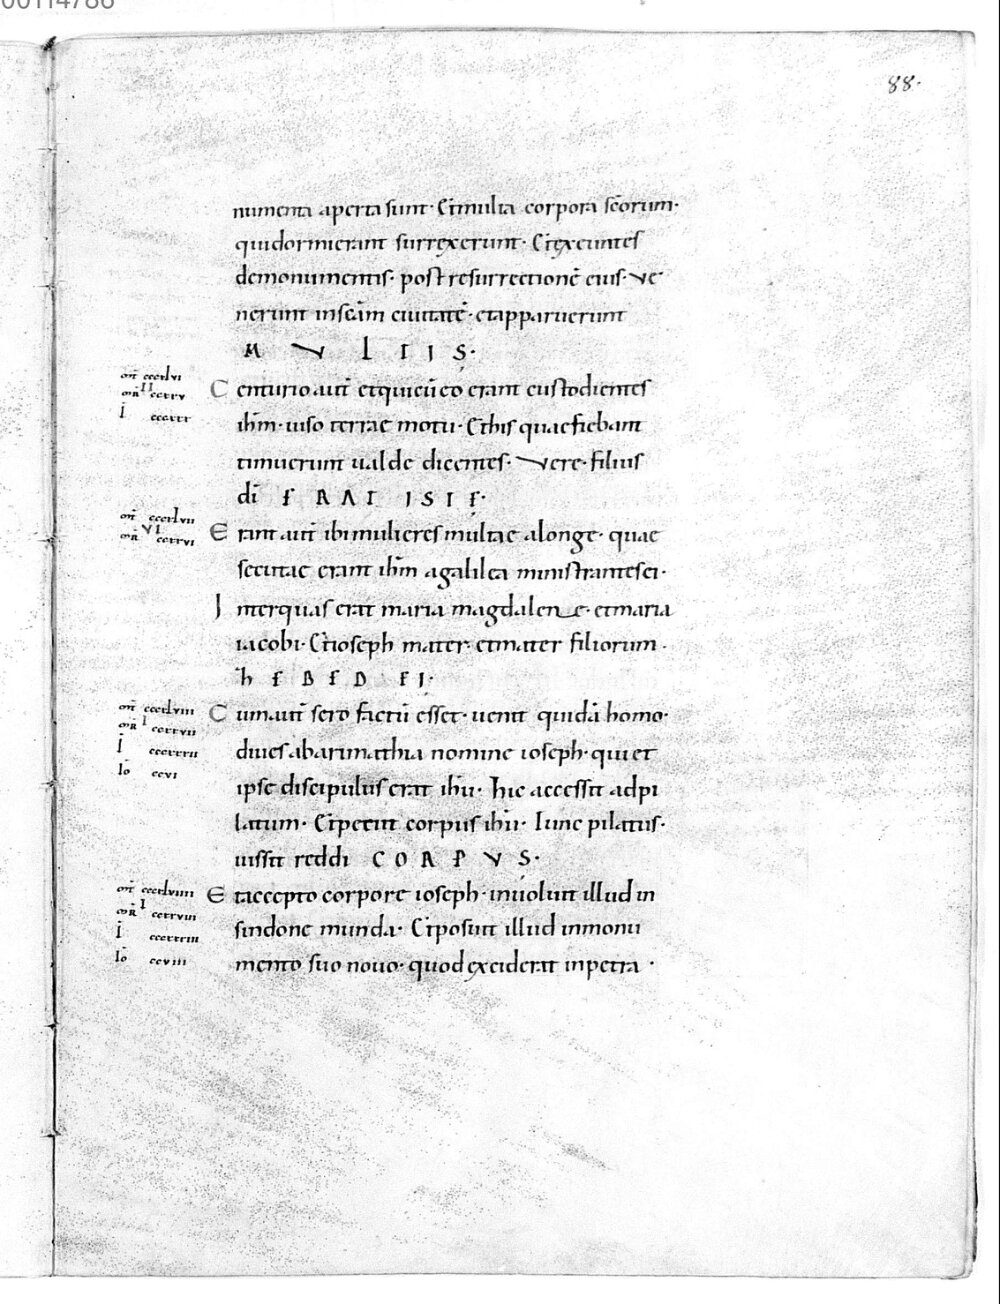 00114786
88.
numenta aperta sunt· Et multa corpora scōrum·
qui dormierant surrexerunt· Et exeuntes
de monumentis· post resurrectionē eius· Ve
nerunt in scām ciuitatē· et apparuerunt
M V L T I S·
om̄ cccxlvi
Centurio aut̄ et qui cū eo erant custodientes
ihm̄· uiso terrae motu· Et his quae fiebant
timuerunt ualde dicentes· Vere· filius
dī ERAT ISTE·
om̄ cccxlvii
Erant aut̄ ibi mulieres multae a longe· quae
secutae erant ihm̄ a galilea ministrantes ei·
Inter quas erat maria magdalene· et maria
iacobi· Et ioseph mater· et mater filiorum·
om̄ cccxlviii
Cum aut̄ sero factū esset· uenit quidā homo·
diues ab arimathia nomine ioseph· qui et
ipse discipulus erat ihū· Hic accessit ad pi
latum· Et petiit corpus ihū· Tunc pilatus·
iussit reddi CORPVS·
om̄ cccxlviiii
Et accepto corpore ioseph· inuoluit illud in
Io ccvi
sindone munda· Et posuit illud in monu
Io ccviii
mento suo nouo· quod exciderat in petra·